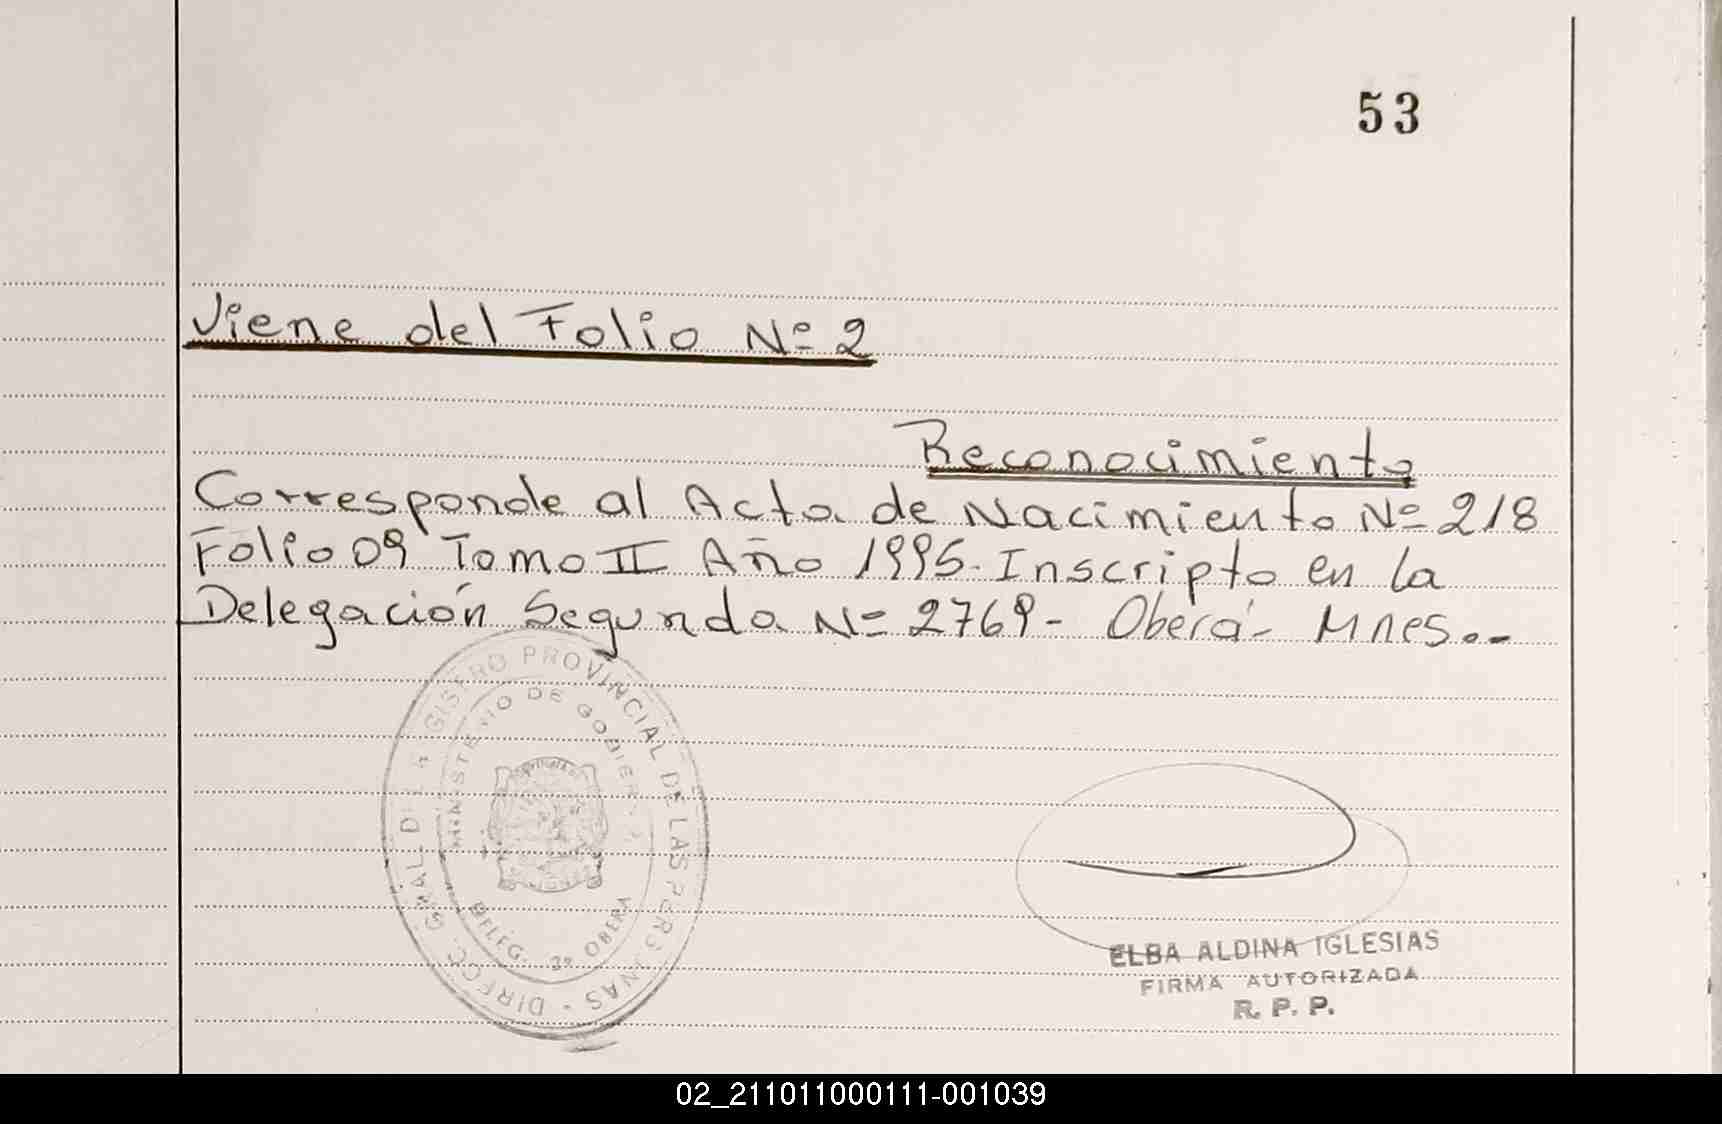 53
Viene del Folio Nº 2
Reconocimiento
Corresponde al Acta de Nacimiento Nº 218
Folio 09 Tomo II Año 1995. Inscripto en la
Delegación Segunda Nº 2769- Oberá- Mnes..-
DIRECC. GRAL DEL REGISTRO PROVINCIAL DE LAS PERSONAS -
MINISTERIO DE GOBIERNO
DELEG. 2ª OBERA
ELBA ALDINA IGLESIAS
FIRMA AUTORIZADA
R. P. P.
02_211011000111-001039